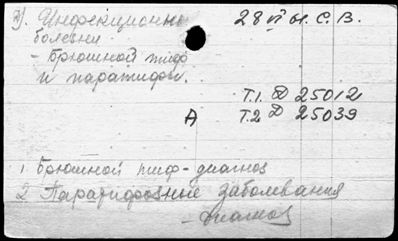 3). Инфекционные
болезни
- Брюшной тиф
и паратифы.
28 VI 61. С. В.
Т.1. Д 25012
А Т.2 Д 25039
1. Брюшной тиф - диагноз
2 Паратифозные заболевания
- диагноз